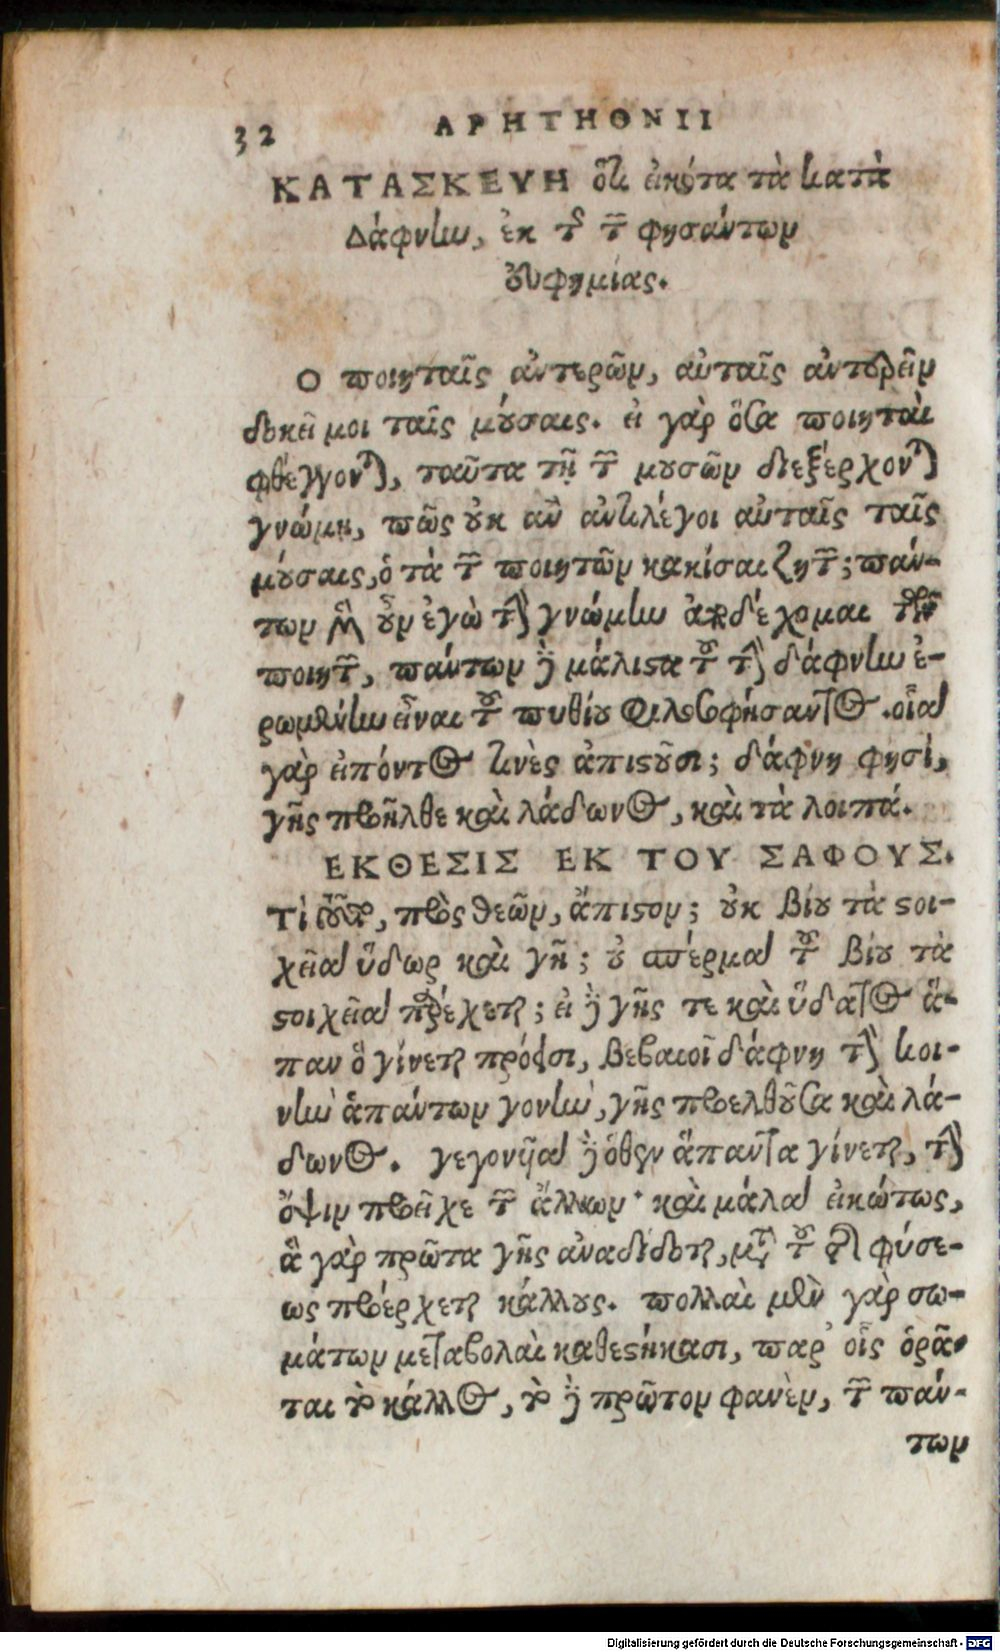 32 ΑΡΗΤΗΟΝΙΙ
ΚΑΤΑΣΚΕΥΗ ὅτι εἰκότα τὰ κατὰ
Δάφνην, ἐκ τῆς τῶν φησάντων
εὐφημίας.
Ο ποιηταῖς ἀντερῶν, αὐταῖς ἀντερεῖν
δοκεῖ μοι ταῖς μούσαις. εἰ γὰρ ὅσα ποιηταὶ
φθέγγονται, ταῦτα τῇ τῶν μουσῶν διεξέρχονται
γνώμῃ, πῶς οὐκ ἂν ἀντιλέγοι αὐταῖς ταῖς
μούσαις, ὁ τὰ τῶν ποιητῶν κακίσαι ζητῶν; πάν-
των μὲν οὖν ἐγὼ τὴν γνώμην ἀποδέχομαι τῶν
ποιητῶν, πάντων δὲ μάλιστα τοῦ τὴν δάφνην ἐ-
ρωμένην εἶναι τοῦ πυθίου φιλοσοφήσαντος. οἷα
γὰρ εἰπόντος τινὲς ἀπιστοῦσι; δάφνη φησὶ,
γῆς προῆλθε καὶ λάδωνος, καὶ τὰ λοιπά.
ΕΚΘΕΣΙΣ ΕΚ ΤΟΥ ΣΑΦΟΥΣ.
Τί τοῦτο, πρὸς θεῶν, ἄπιστον; οὐκ βίου τὰ στοι-
χεῖα ὕδωρ καὶ γῆ; οὐ σπέρμα τοῦ βίου τὰ
στοιχεῖα προέχεται; εἰ δὲ γῆς τε καὶ ὕδατος ἅ-
παν ὃ γίνεται πρόεισι, βεβαιοῖ δάφνη τὴν κοι-
νὴν ἁπάντων γονὴν, γῆς προελθοῦσα καὶ λά-
δωνος. γεγονυῖα δὲ ὅθεν ἅπαντα γίνεται, τὴν
ὄψιν προεῖχε τῶν ἄλλων· καὶ μάλα εἰκότως,
ἃ γὰρ πρῶτα γῆς ἀναδίδοται, μετὰ τοῦ τῆς φύσε-
ως προέρχεται κάλλους. πολλαὶ μὲν γὰρ σω-
μάτων μεταβολαὶ καθεστήκασι, παρ᾽ οἷς ὁρᾶ-
ται τὸ κάλλος, τὸ δὲ πρῶτον φανὲν, τῶν πάν-
των
Digitalisierung gefördert durch die Deutsche Forschungsgemeinschaft - DFG